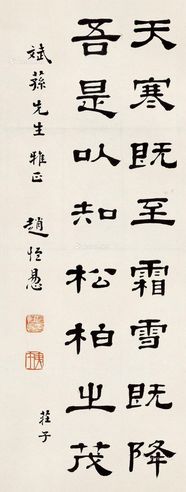 天寒既至霜雪既降
吾是以知松柏之茂
莊子
斌蓀先生雅正
趙恒惖